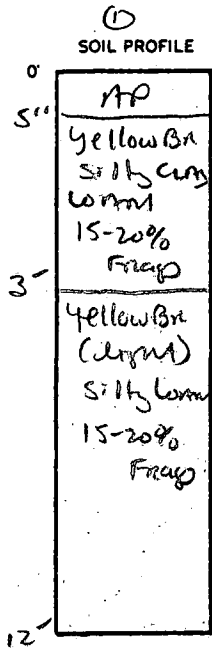 ①
SOIL PROFILE
0'
AP
5"
Yellow Bn
Silty Clay
Loam
15-20%
Frags
3'
Yellow Bn
(light)
Silty Loam
15-20%
Frags
12'